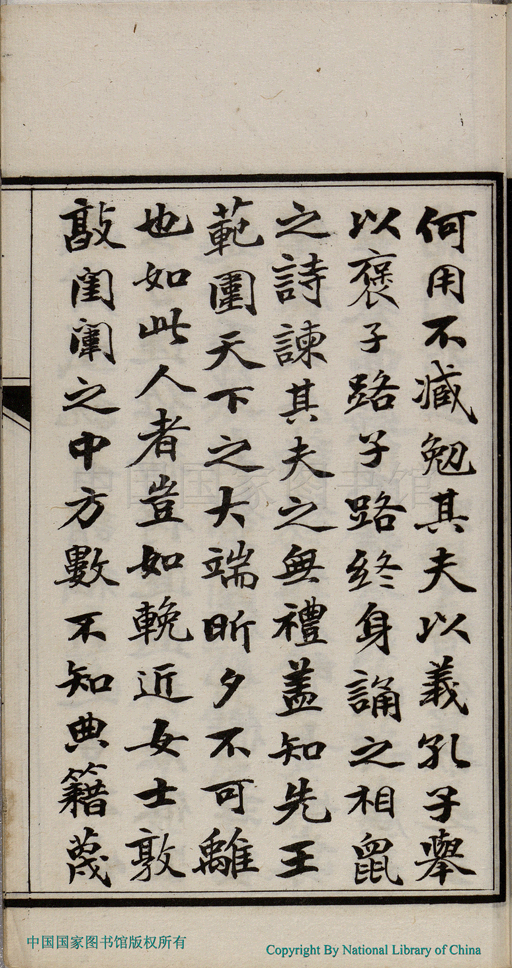 何用不臧勉其夫以義孔子舉
以褒子路子路終身誦之相鼠
之詩諫其夫之無禮蓋知先王
範圍天下之大端昕夕不可離
也如此人者豈如輓近女士敦
敲閨闈之中方數不知典籍蔑
中国国家图书馆
中国国家图书馆版权所有
Copyright By National Library of China